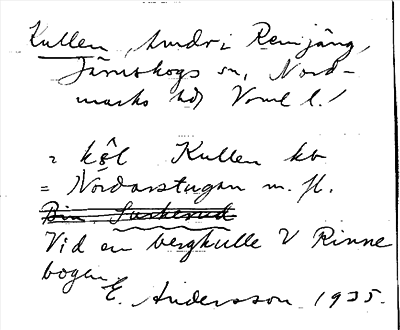 Kullen, hmdr i Renjäng,
Järnskogs sn, Nord-
marks hd Vrml l.
= kôl Kullen kb
= Nordarstugan m. fl.
Bin. Saskerud
Vid en bergkulle V Rinne
bogen
E. Andersson 1935.